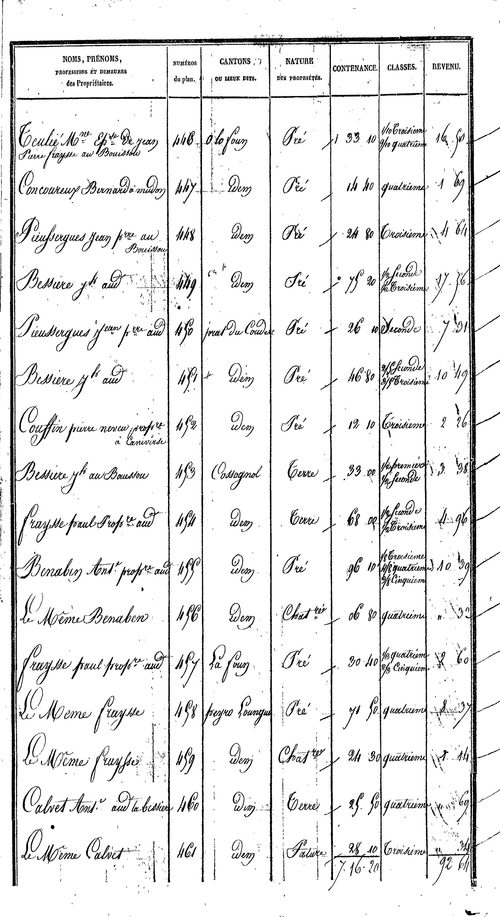 NOMS, PRÉNOMS, PROFESSIONS ET DEMEURES des Propriétaires. | NUMÉROS du plan. | CANTONS OU LIEUX DITS. | NATURE DES PROPRIÉTÉS. | CONTENANCE. | CLASSES. | REVENU.
Teulié Mne Epse De jean 446 à la foun Pré 1 33 10 Troisieme quatrieme 16 50
Pierre fraysse au Bouissou
Concoureux Bernard à mudon 447 idem Pré 14 40 quatrieme 1 69
Pieussergues jean pre au 448 idem Pré 24 80 Troisieme 4 64
Bouissou
Bessiere jh aud 449 idem Pré 75 20 1/2 Seconde 1/2 Troisieme 17 56
Pieussergues jean pre aud 450 prat du Couderc Pré 26 10 Seconde 7 31
Bessiere jh aud 451 idem Pré 46 80 Seconde Troisieme 10 49
Couffin pierre neveu propre 452 idem Pré 12 10 Troisieme 2 26
à
Bessiere jh au Bouissou 453 Cossognol Terre 33 00 1/2 premiere 1/2 Seconde 3 38
fraysse paul Propre aud 454 idem Terre 68 00 1/2 Seconde 1/2 Troisieme 4 96
Benaben Ant. propre aud 455 idem Pré 96 10 Troisieme quatrieme Cinquieme 10 39
Le Même Benaben 456 idem Chatre 06 80 quatrieme " 33
fraysse paul propre aud 457 La foun Pré 30 40 quatrieme Cinquieme 2 60
Le Même fraysse 458 peyro Loungue Pré 71 50 quatrieme 8 37
Le Même fraysse 459 idem Chatre 24 30 quatrieme 1 14
Calvet Ant. aud la bessiere 460 idem Terre 25 50 quatrieme " 69
Le Même Calvet 461 idem Pature 28 10 Troisieme " 34
7.16.20 92 64